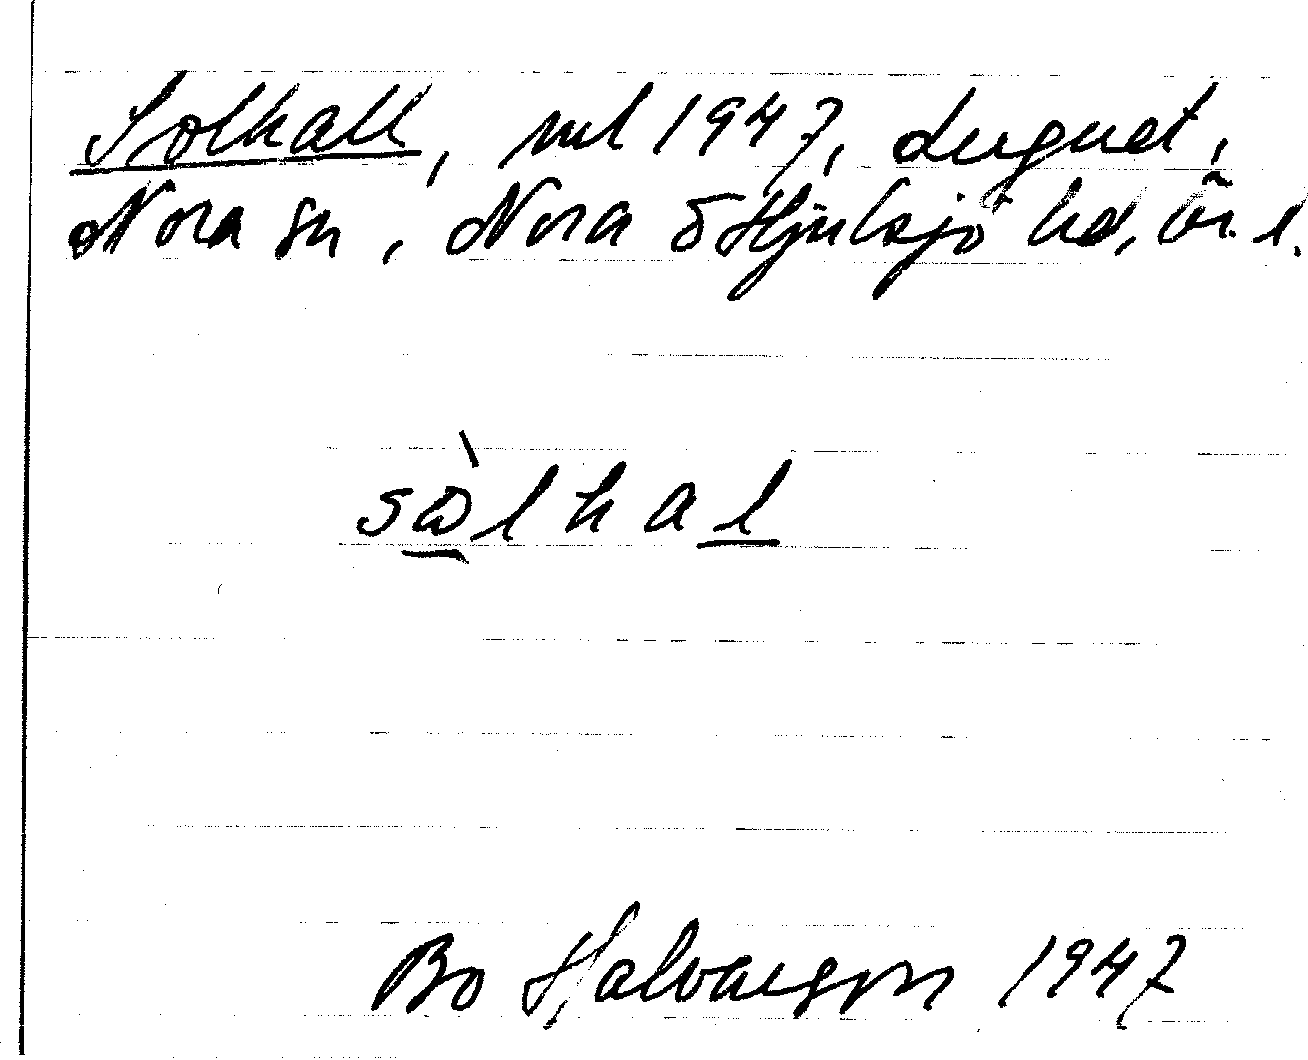 Solhall, nul 1947, Lugnet,
Nora sn, Nora o Hjulsjö hd, Ör. l.
sòlhal
Bo Halvarson 1947